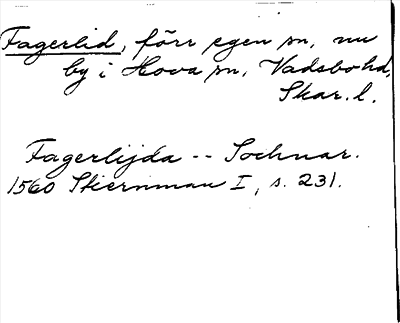 Fagerlid, förr egen sn, nu
by i Hova sn, Vadsbo hd,
Skar. l.
Fagerlijda -- Sochnar.
1560 Stiernman I, s. 231.